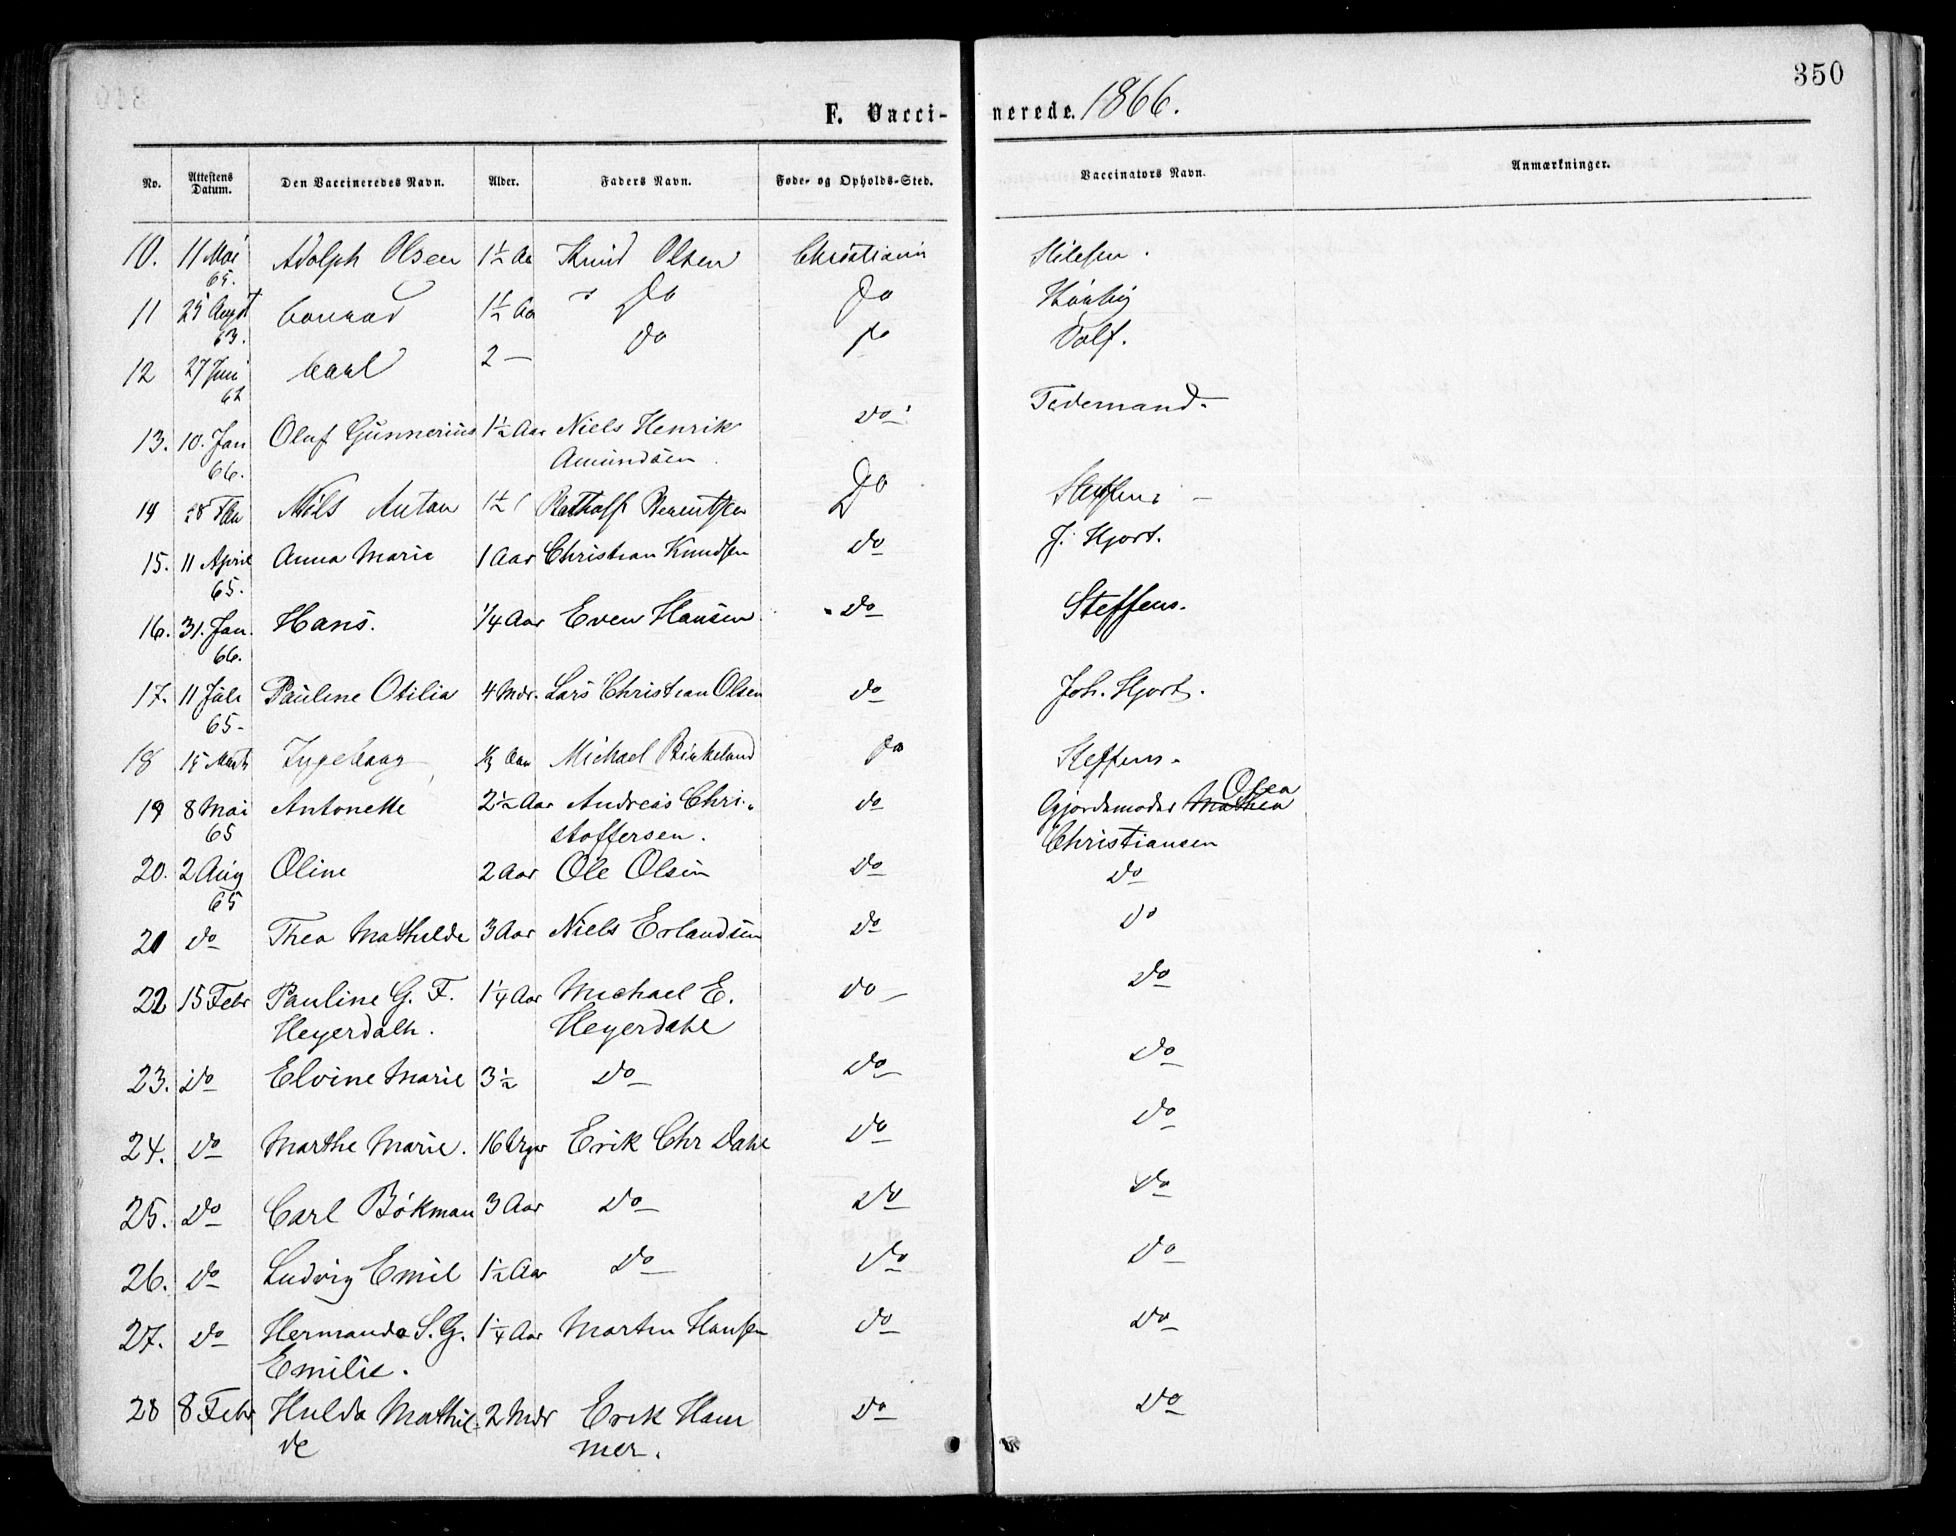 350
F. Vaccinerede. 1866.
No. Attestens Datum. Den Vaccineredes Navn. Alder. Faders Navn. Føde- og Opholds-Sted. Vaccinators Navn. Anmærkninger.
10. 11 Mai Adolph Olsen 1½ Aa Knud Olsen Christiania
65.
11 25 Augst Conrad 1½ Aa Do Do
63.
12 27 Juni Carl 2 — do do Voss.
62
13. 10. Jan Oluf Gunnerius 1½ Aar Niels Henrik do Tidemand
66. Amundsen
14 28 Nils Anton 1½ Berentsen Do Steffens
15. 11 April Anna Marie 1 Aar Christian Knudsen do J. Hjort.
65.
16. 31. Jan. Hans. ¼ Aar Even Hansen do Steffens.
66.
17. 11 Juli Pauline Otilia 4 Mdr. Lars Christian Olsen do Joh. Hjort.
65
18 15 Ingeborg ⅓ Aar Michael Birkeland do Steffens.
19 8 Mai Antonette 2½ Aar Andreas Chri- do Gjordemoder Mathea Olea
65 stoffersen. Christiansen
20. 2 Aug Oline 2 Aar Ole Olsen do do
65
21 do Thea Mathilde 3 Aar Niels Erlandsen do do
22 15 Febr Pauline G. F. 1¼ Aar Michael E. do do
Heyerdalh. Heyerdahl
23. do Elvine Marie 3½ do do do
24. do Marthe Marie. 16 Uger Erik Chr Dahl do do
25. do Carl Bökman 3 Aar do do do
26. do Ludvig Emil 1½ Aar do do do
27. do Hermanda S. G. 1¼ Aar Morten Hansen do do
Emilie.
28 8 Febr Hulda Mathil- 2 Mdr Erik Ham do do
de mer.